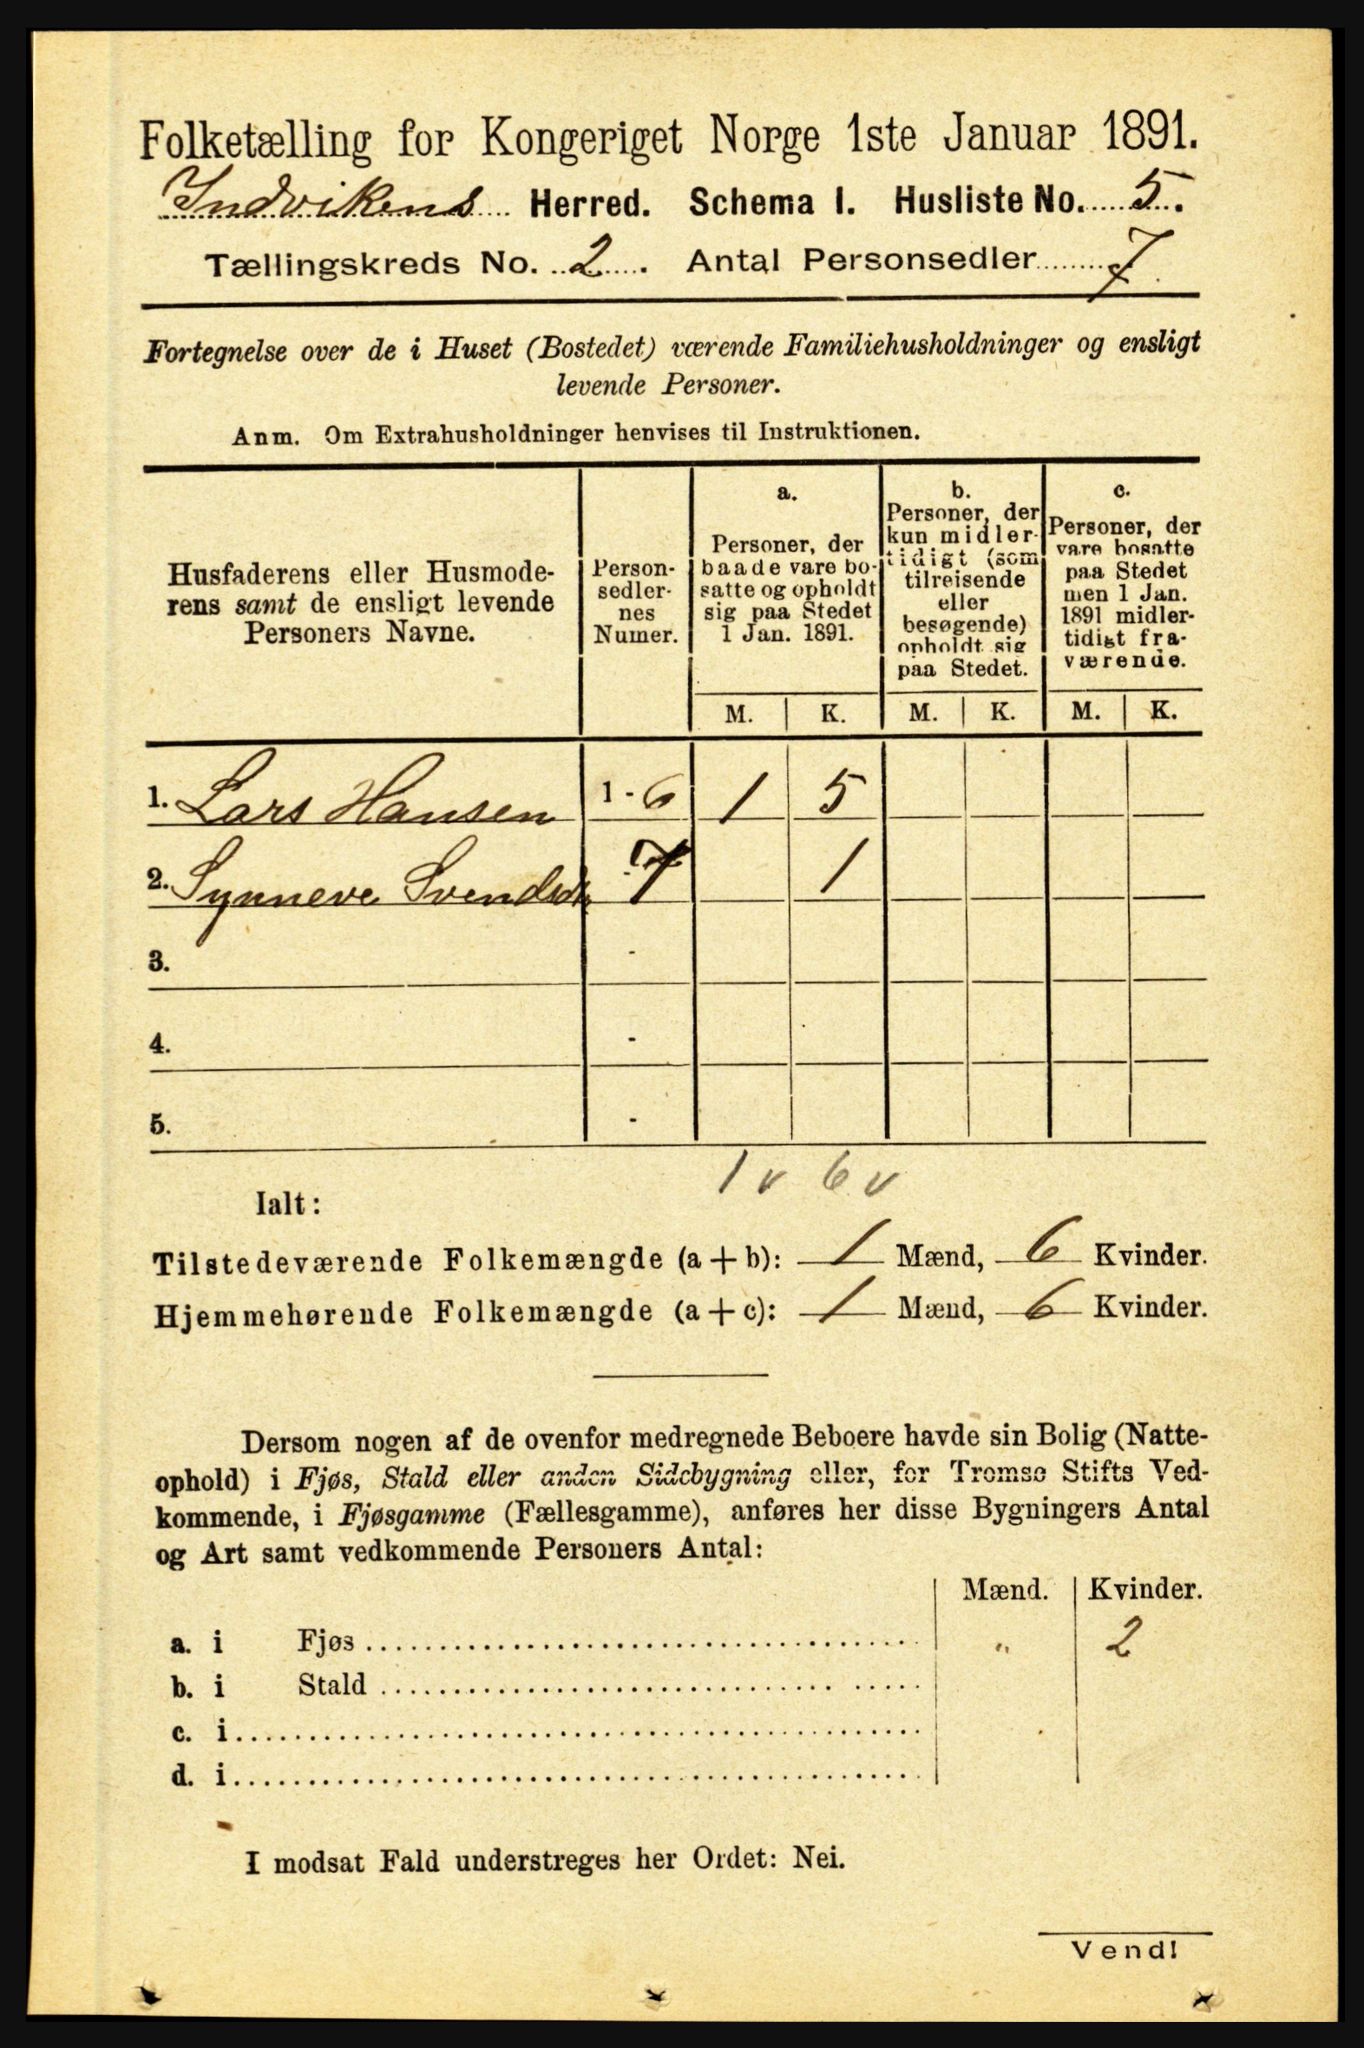 Folketælling for Kongeriget Norge 1ste Januar 1891.
Indvikens Herred. Schema I. Husliste No. 5.
Tællingskreds No. 2. Antal Personsedler 7
Fortegnelse over de i Huset (Bostedet) værende Familiehusholdninger og ensligt
levende Personer.
Anm. Om Extrahusholdninger henvises til Instruktionen.
Husfaderens eller Husmode-
rens samt de ensligt levende
Personers Navne.
Person-
sedler-
nes
Numer.
a.
Personer, der
baade vare bo-
satte og opholdt
sig paa Stedet
1 Jan. 1891.
b.
Personer, der
kun midler-
tidigt (som
tilreisende
eller
besøgende)
opholdt sig
paa Stedet.
c.
Personer, der
vare bosatte
paa Stedet
men 1 Jan.
1891 midler-
tidigt fra-
værende.
M. K. M. K. M. K.
1. Lars Hansen 1 - 6 1 5
2. Synneve Svendsdtr 7 1
3. -
4. -
5. -
1 v 6 v
Ialt:
Tilstedeværende Folkemængde (a + b): 1 Mænd, 6 Kvinder.
Hjemmehørende Folkemængde (a + c): 1 Mænd, 6 Kvinder.
Dersom nogen af de ovenfor medregnede Beboere havde sin Bolig (Natte-
ophold) i Fjøs, Stald eller anden Sidebygning eller, for Tromsø Stifts Ved-
kommende, i Fjøsgamme (Fællesgamme), anføres her disse Bygningers Antal
og Art samt vedkommende Personers Antal:
Mænd. Kvinder.
a. i Fjøs " 2
b. i Stald
c. i
d. i
I modsat Fald understreges her Ordet: Nei.
Vend!